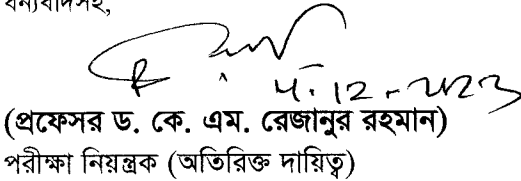 ধন্যবাদসহ,
4.12.2023
(প্রফেসর ড. কে. এম. রেজানুর রহমান)
পরীক্ষা নিয়ন্ত্রক (অতিরিক্ত দায়িত্ব)